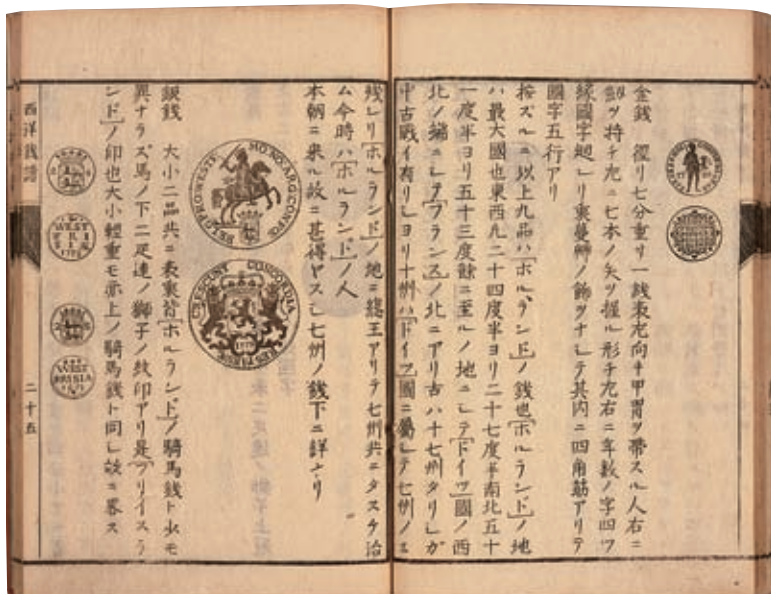 金銭 徑リ七分重リ一銭表左向キ甲冑ヲ帯スル人右ニ
劔ヲ持チ左ニ七本ノ矢ヲ握ル形チ左右ニ年數ノ字四ツ
縁國字廻レリ裏蔓艸ノ飾ヲナシテ其内ニ四角筋アリテ
國字五行アリ
按スルニ以上九品ハ「ホルランド」ノ銭也「ホルランド」ノ地
ハ最大國也東西凡二十四度半ヨリ二十七度半南北五十
一度半ヨリ五十三度餘ニ至ルノ地ニシテ「ドイツ」國ノ西
北ノ端ニシテ「フランス」ノ北ニアリ古ハ十七州タリシガ
中古戰イ有リシヨリ十州ハ「ドイツ」國ニ屬シテ七州ノミ
残レリ「ホルランド」ノ地ニ總王アリテ七州共ニタスケ治
ム今時ハ「ホルランド」ノ人
本朝ニ來ル故ニ甚得ヤスシ七州ノ銭下ニ詳ナリ
MO:NO:ARG:CONFOE
BELG:PRO:WESTF
CONCORDIA
RES PARVÆ
CRESCUNT
銀銭 大小二品共ニ表裏皆「ホルランド」ノ騎馬銭ト少モ
異ナラズ馬ノ下ニ二疋連ノ獅子ノ紋印アリ是「フリイスラ
ンド」ノ印也大小輕重モ亦上ノ騎馬銭ト同シ故ニ畧ス
WEST
FRISIA
西洋銭譜
二十五